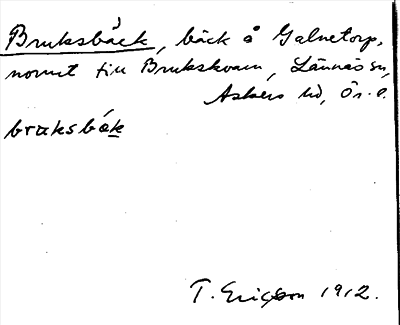 Bruksbäck, bäck å Galnetorp,
norrut till Brukskvarn, Lännäs sn,
Askers hd, Ör. l.
braksbäk
T. Ericsson 1912.